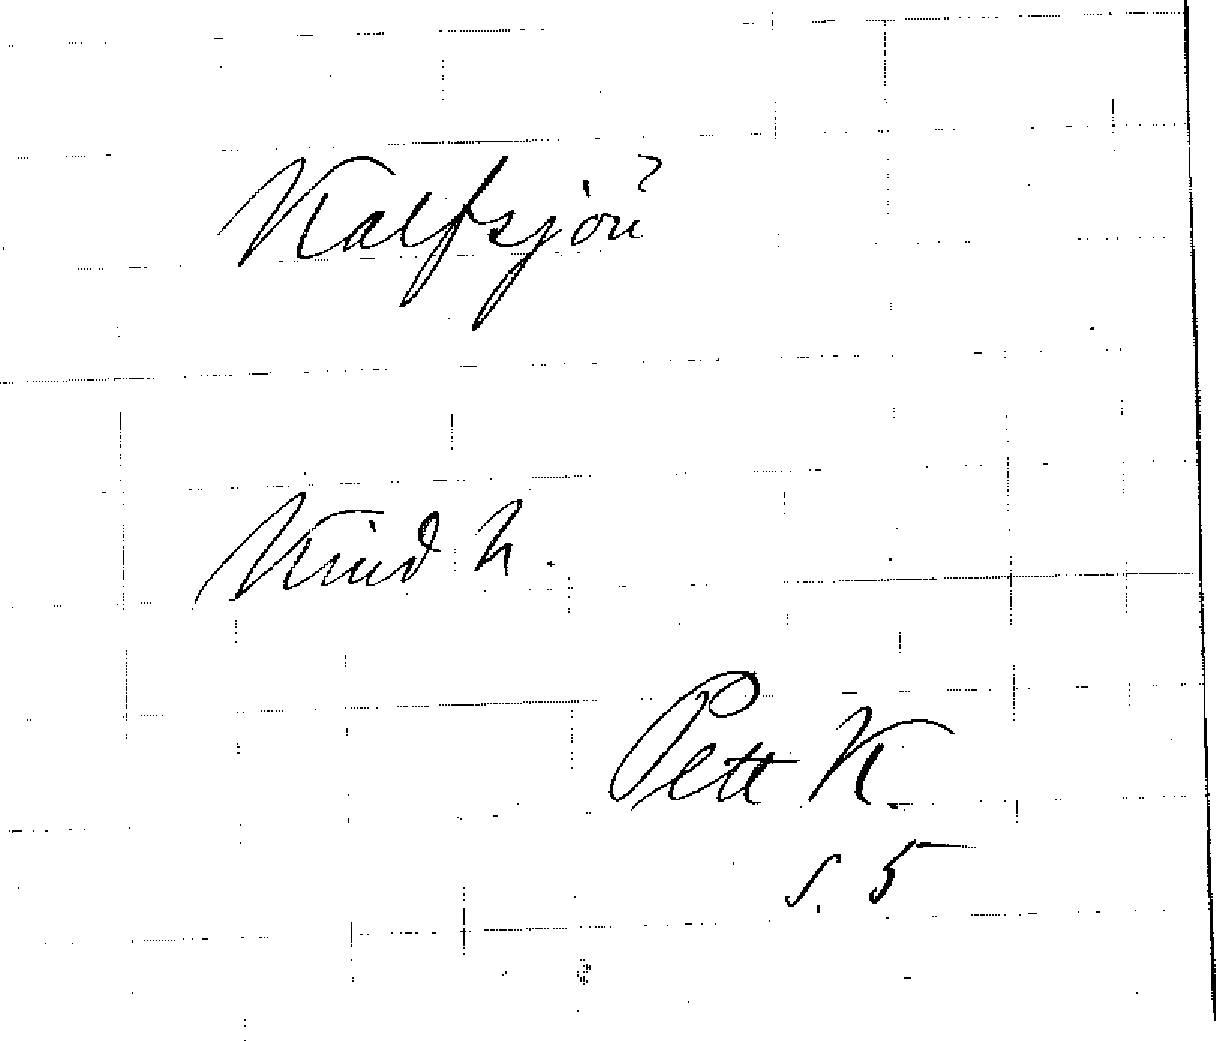 Kalfsjön
Kind h.
Pett K.
s. 5